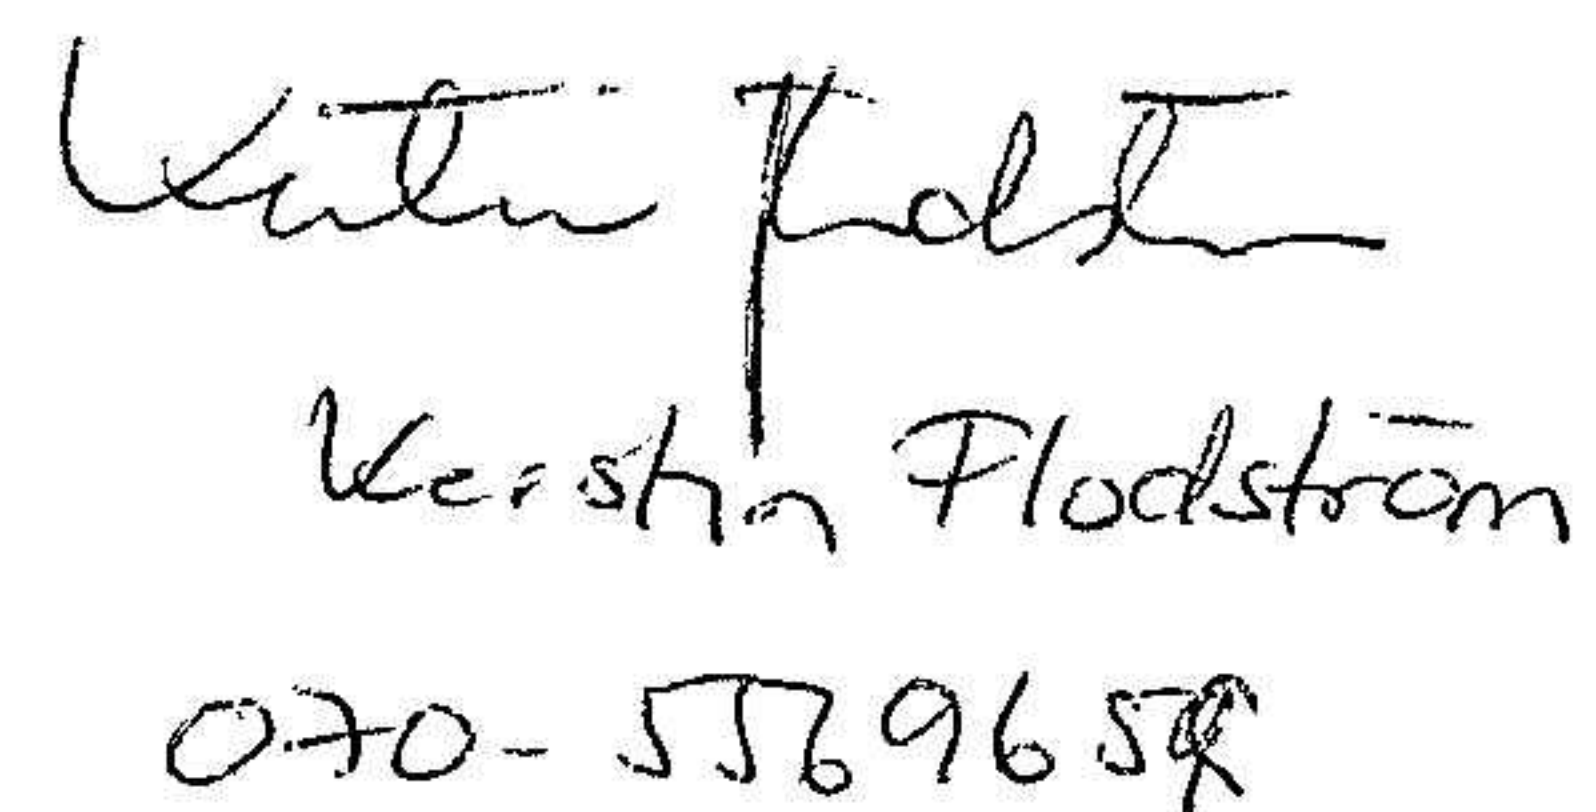 Kerstin Flodström
Kerstin Flodström
070-